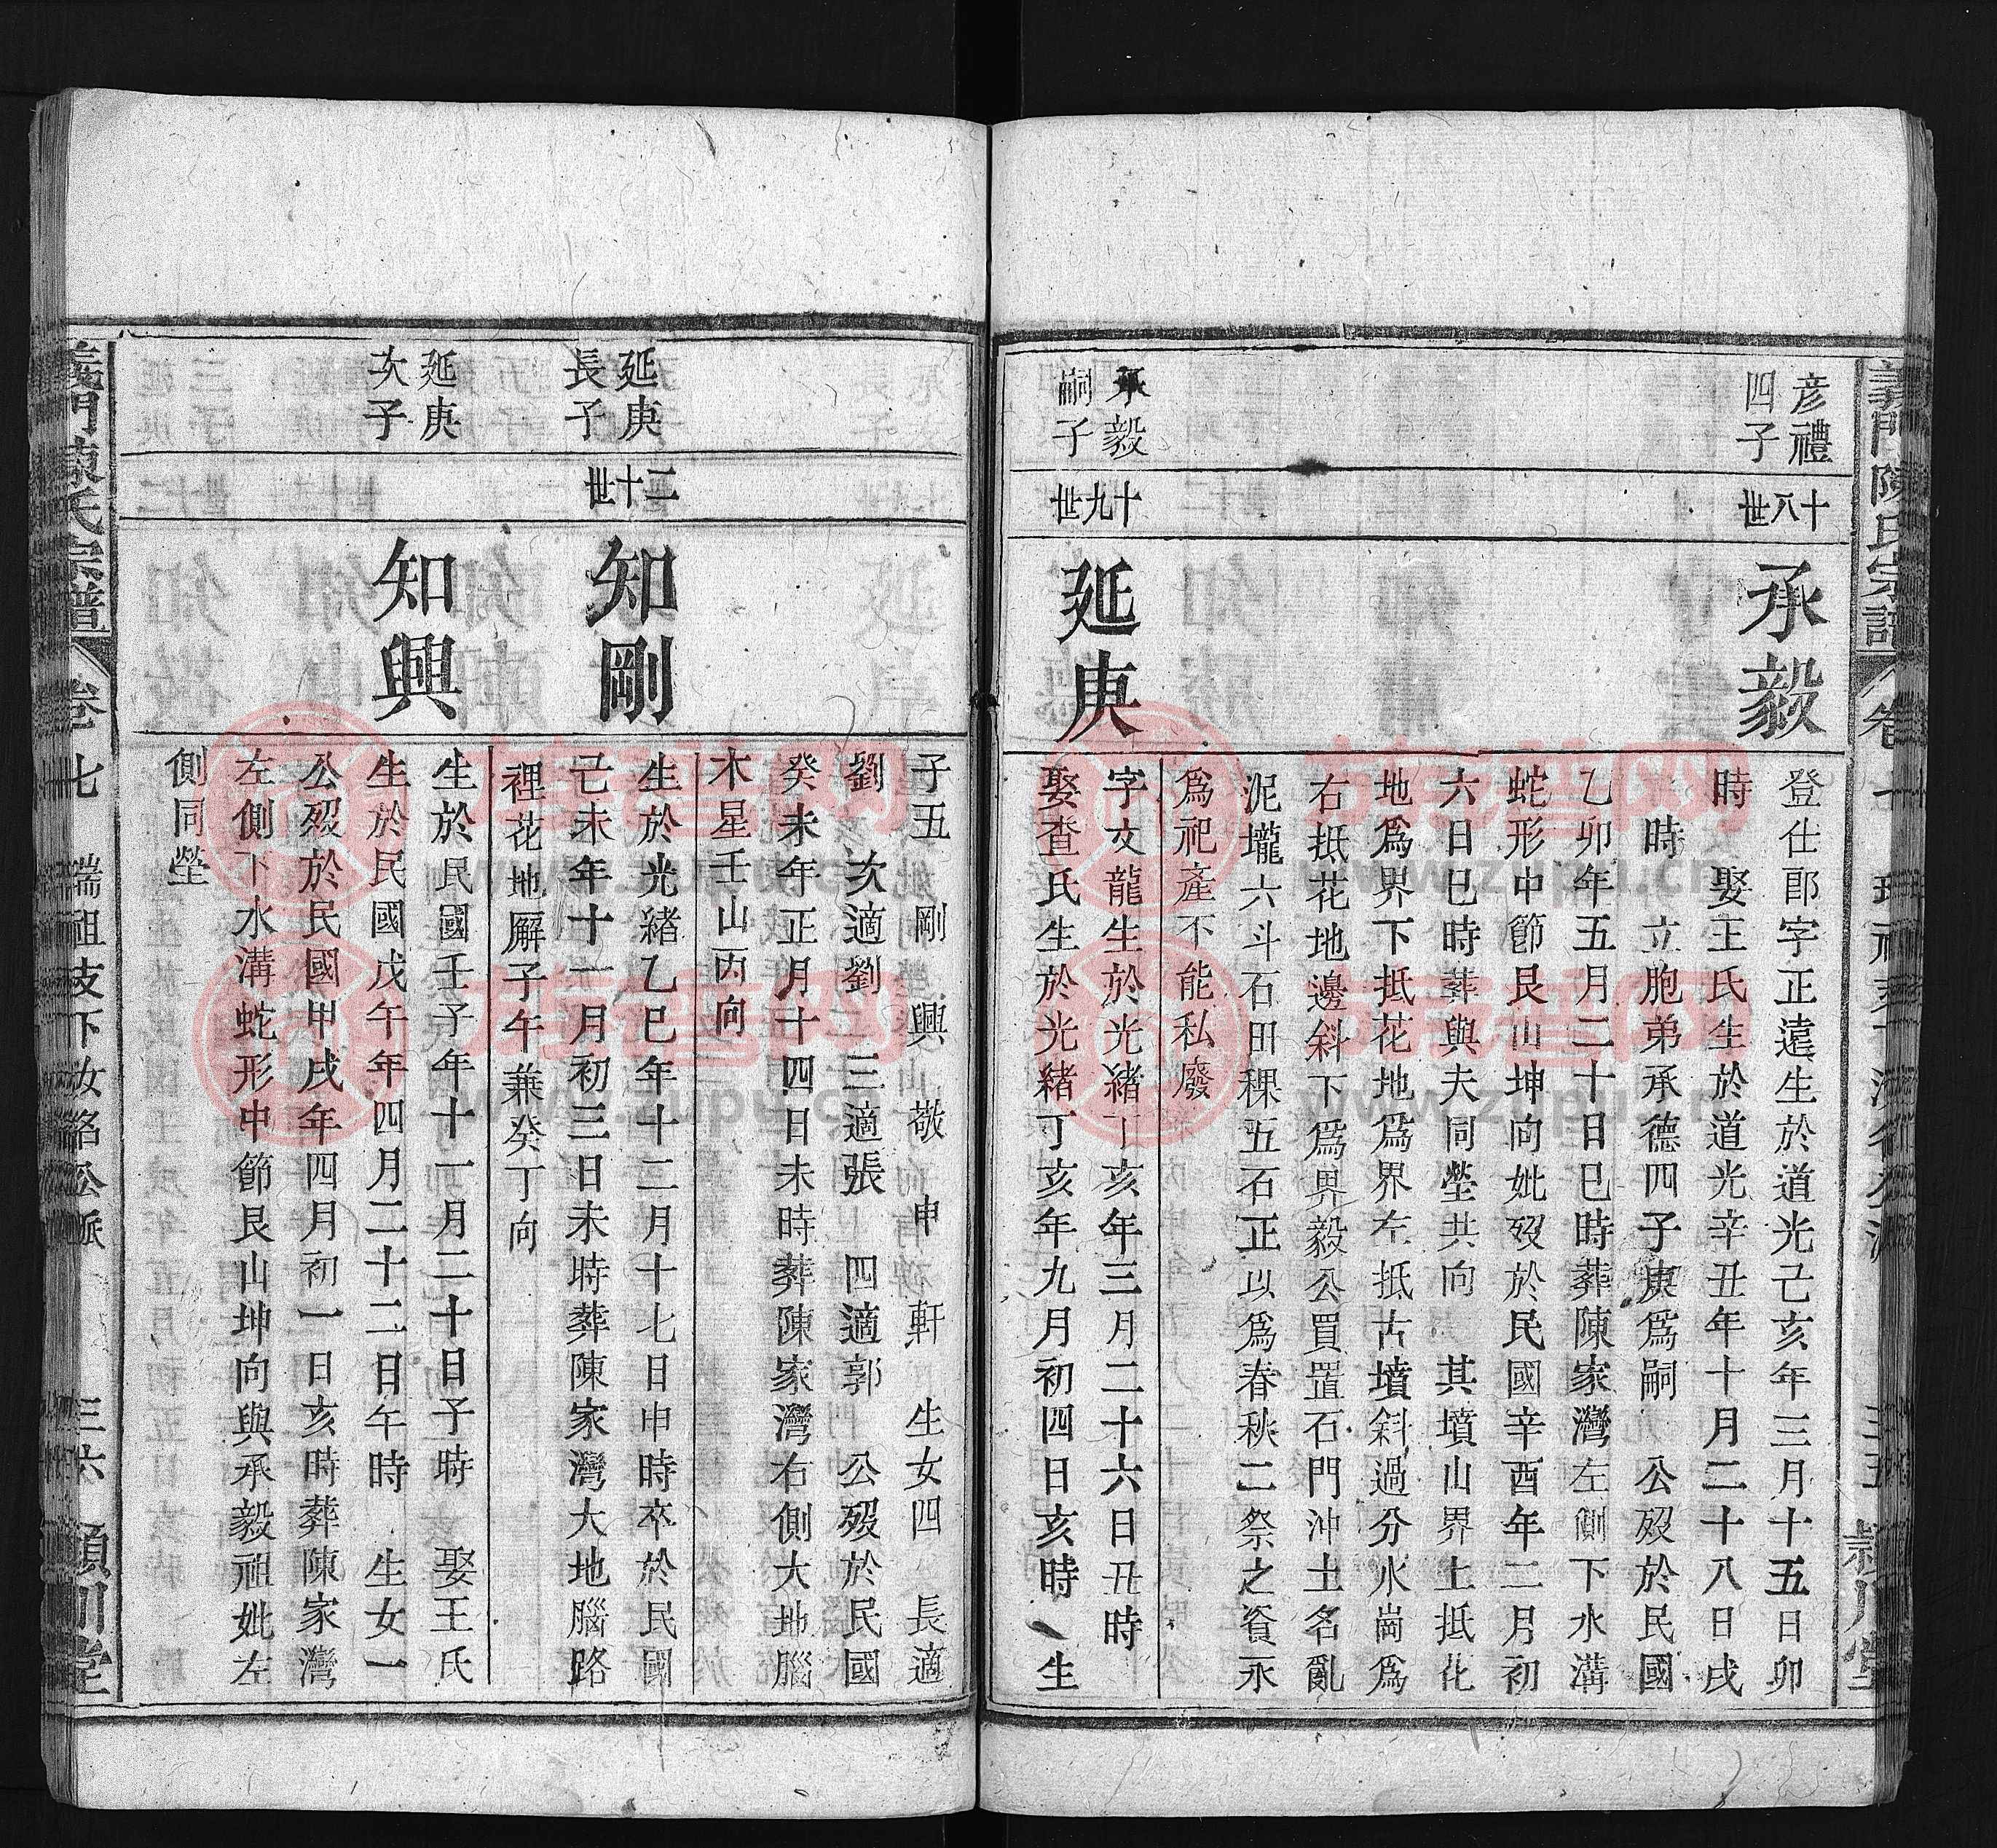 義門陳氏宗譜
卷七
三五
潁川堂
彥禮
四子
十八世
承毅
登仕郎字正遠生於道光己亥年三月十五日卯
時　娶王氏生於道光辛丑年十月二十八日戌
時　立胞弟承德四子庚爲嗣　公歿於民國
乙卯年五月二十日巳時葬陳家灣左側下水溝
蛇形中節艮山坤向妣歿於民國辛酉年二月初
六日巳時葬與夫同塋共向　其墳山界上抵花
地爲界下抵花地爲界左抵古墳斜過分水崗爲
右抵花地邊斜下爲界毅公買置石門沖土名亂
泥壠六斗石田稞五石正以爲春秋二祭之資永
爲祀產不能私廢
承毅
嗣子
十九世
延庚
字文龍生於光緒丁亥年三月二十六日丑時
娶查氏生於光緒丁亥年九月初四日亥時　生
子五　剛　興　敬　申　軒　生女四　長適
劉　次適劉　三適張　四適郭　公歿於民國
癸未年正月十四日未時葬陳家灣右側大地腦
木星壬山丙向
延庚
長子
二十世
知剛
生於光緒乙巳年十二月十七日申時卒於民國
己未年十一月初三日未時葬陳家灣大地腦路
裡花地厫子午兼癸丁向
延庚
次子
知興
生於民國壬子年十一月二十日子時　娶王氏
生於民國戊午年四月二十二日午時　生女一
公歿於民國甲戌年四月初一日亥時葬陳家灣
左側下水溝蛇形中節艮山坤向與承毅祖妣左
側同塋
義門陳氏宗譜
卷七
端祖支下汝銘公派
三六
潁川堂
族譜网
www.zupu.cn
族譜网
www.zupu.cn
族譜网
www.zupu.cn
族譜网
www.zupu.cn